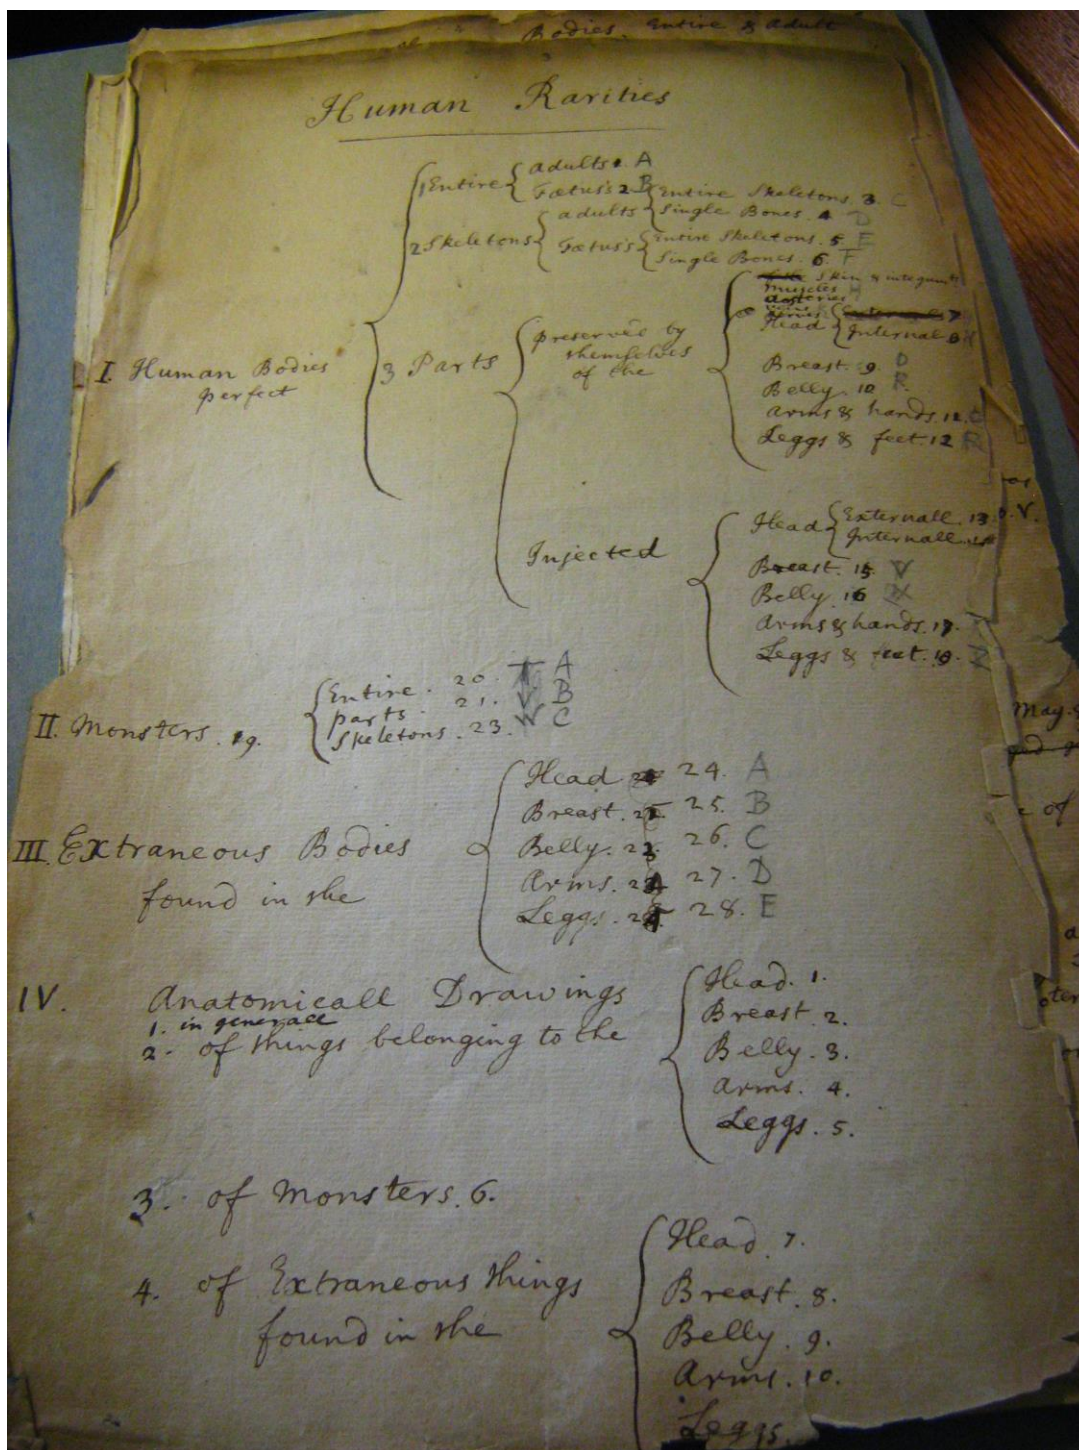 Bodies. Entire & Adult
Human Rarities
1 Entire { adults 1. A
Fœtus's 2 B
2 Skeletons { adults { Entire Skeletons. 3. C
Single Bones. 4 D
Fœtus's { Entire Skeletons. 5. E
Single Bones. 6 F
I. Human Bodies
perfect
3 Parts
preserved by
themselves
of the
Skin & integum
muscles H
arteries
Head { Internal 8
Breast. 9. D
Belly. 10 R.
arms & hands. 12.
Leggs & feet. 12
Injected
Head { Externall. 13
Internall.
Breast. 15 V
Belly. 16
Arms & hands. 17.
Leggs & feet. 19.
II. Monsters. 19.
{ Entire. 20. A
parts. 21. B
Skeletons. 23. C
III. Extraneous Bodies
found in the
Head 24. A
Breast. 25. B
Belly. 26. C
Arms. 27. D
Leggs. 28. E
IV. Anatomicall Drawings
1. in generall
2. of things belonging to the
Head. 1.
Breast. 2.
Belly. 3.
arms. 4.
Leggs. 5.
3. of Monsters. 6.
4. of Extraneous things
found in the
Head. 7.
Breast. 8.
Belly. 9.
Arms. 10.
Leggs.
May.
of